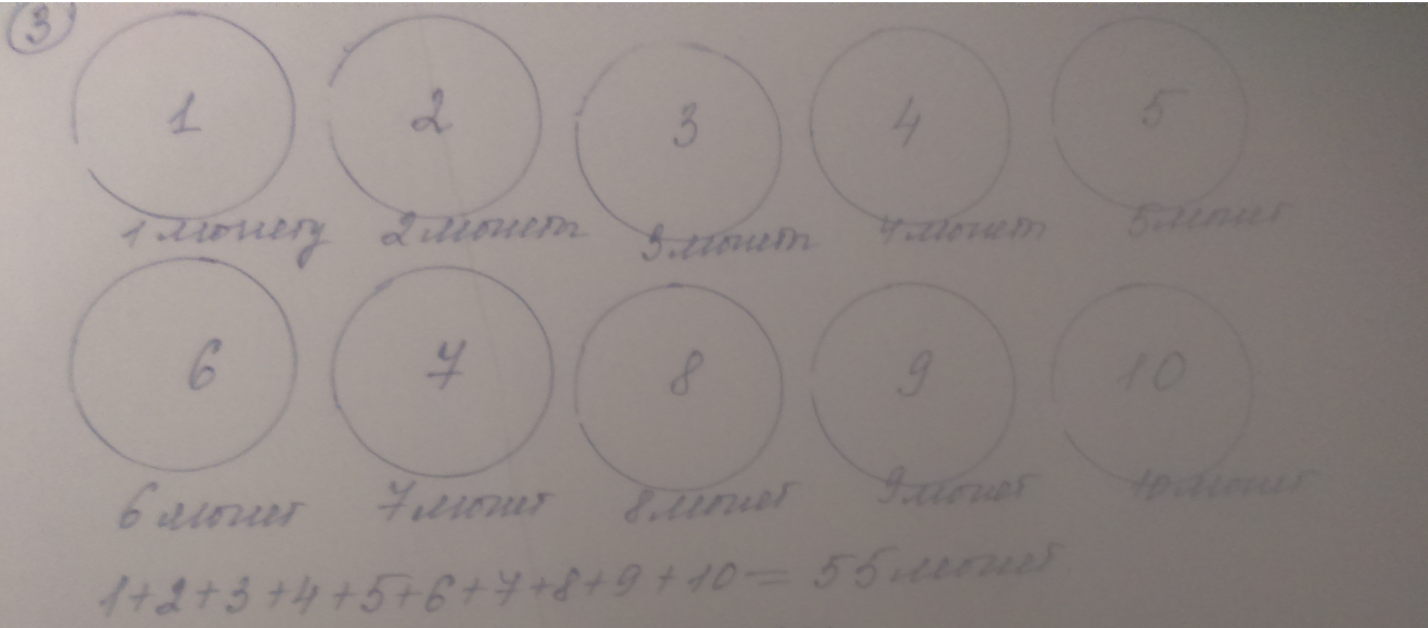 3
1 2 3 4 5
1 монету 2 монеты 3 монеты 4 монеты 5 монет
6 7 8 9 10
6 монет 7 монет 8 монет 9 монет 10 монет
1+2+3+4+5+6+7+8+9+10= 55 монет